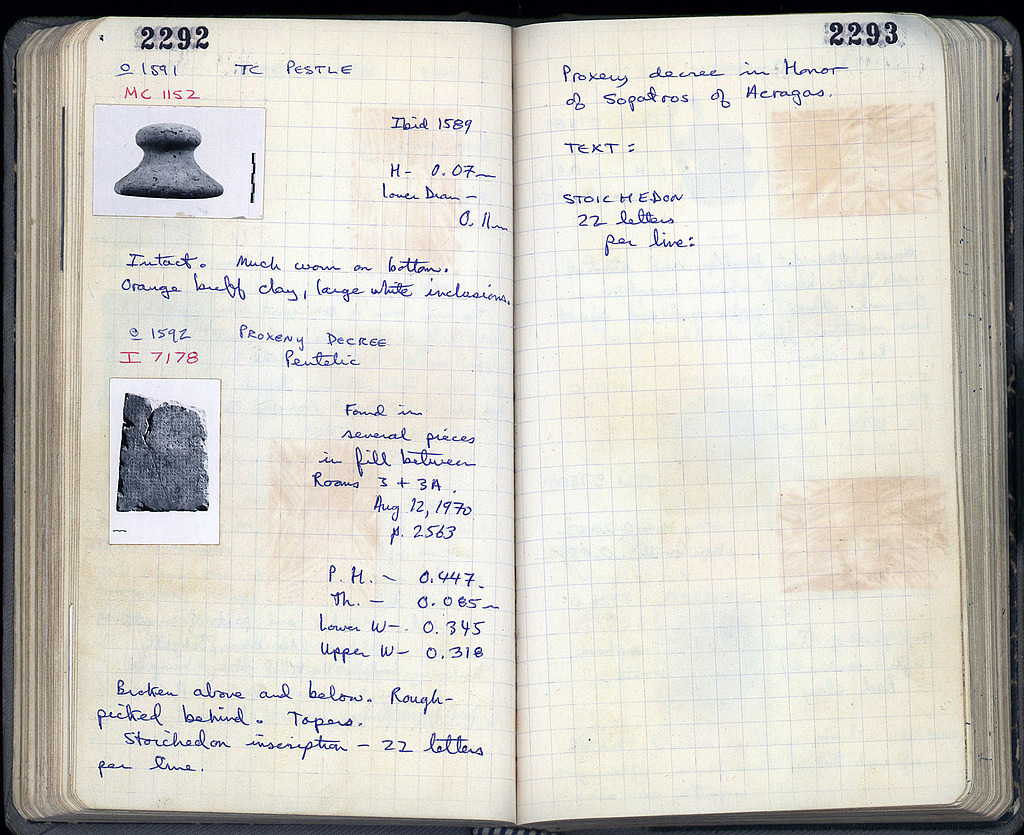 2292
Ο 1591 TC PESTLE
MC 1152
Ibid 1589
H- 0.07m
Lower Diam -
0.11m
Intact. Much worn on bottom.
Orange buff clay, large white inclusions.
Ο 1592 PROXENY DECREE
I 7178 Pentelic
Found in
several pieces
in fill between
Rooms 3 + 3A.
Aug 12, 1970
p. 2563
P. H. - 0.447
Th. - 0.085m
Lower W- 0.345
Upper W- 0.318
Broken above and below. Rough-
picked behind. Tapers.
Stoichedon inscription - 22 letters
per line.
2293
Proxeny decree in Honor
of Sopatros of Acragas.
TEXT:
STOICHEDON
22 letters
per line: